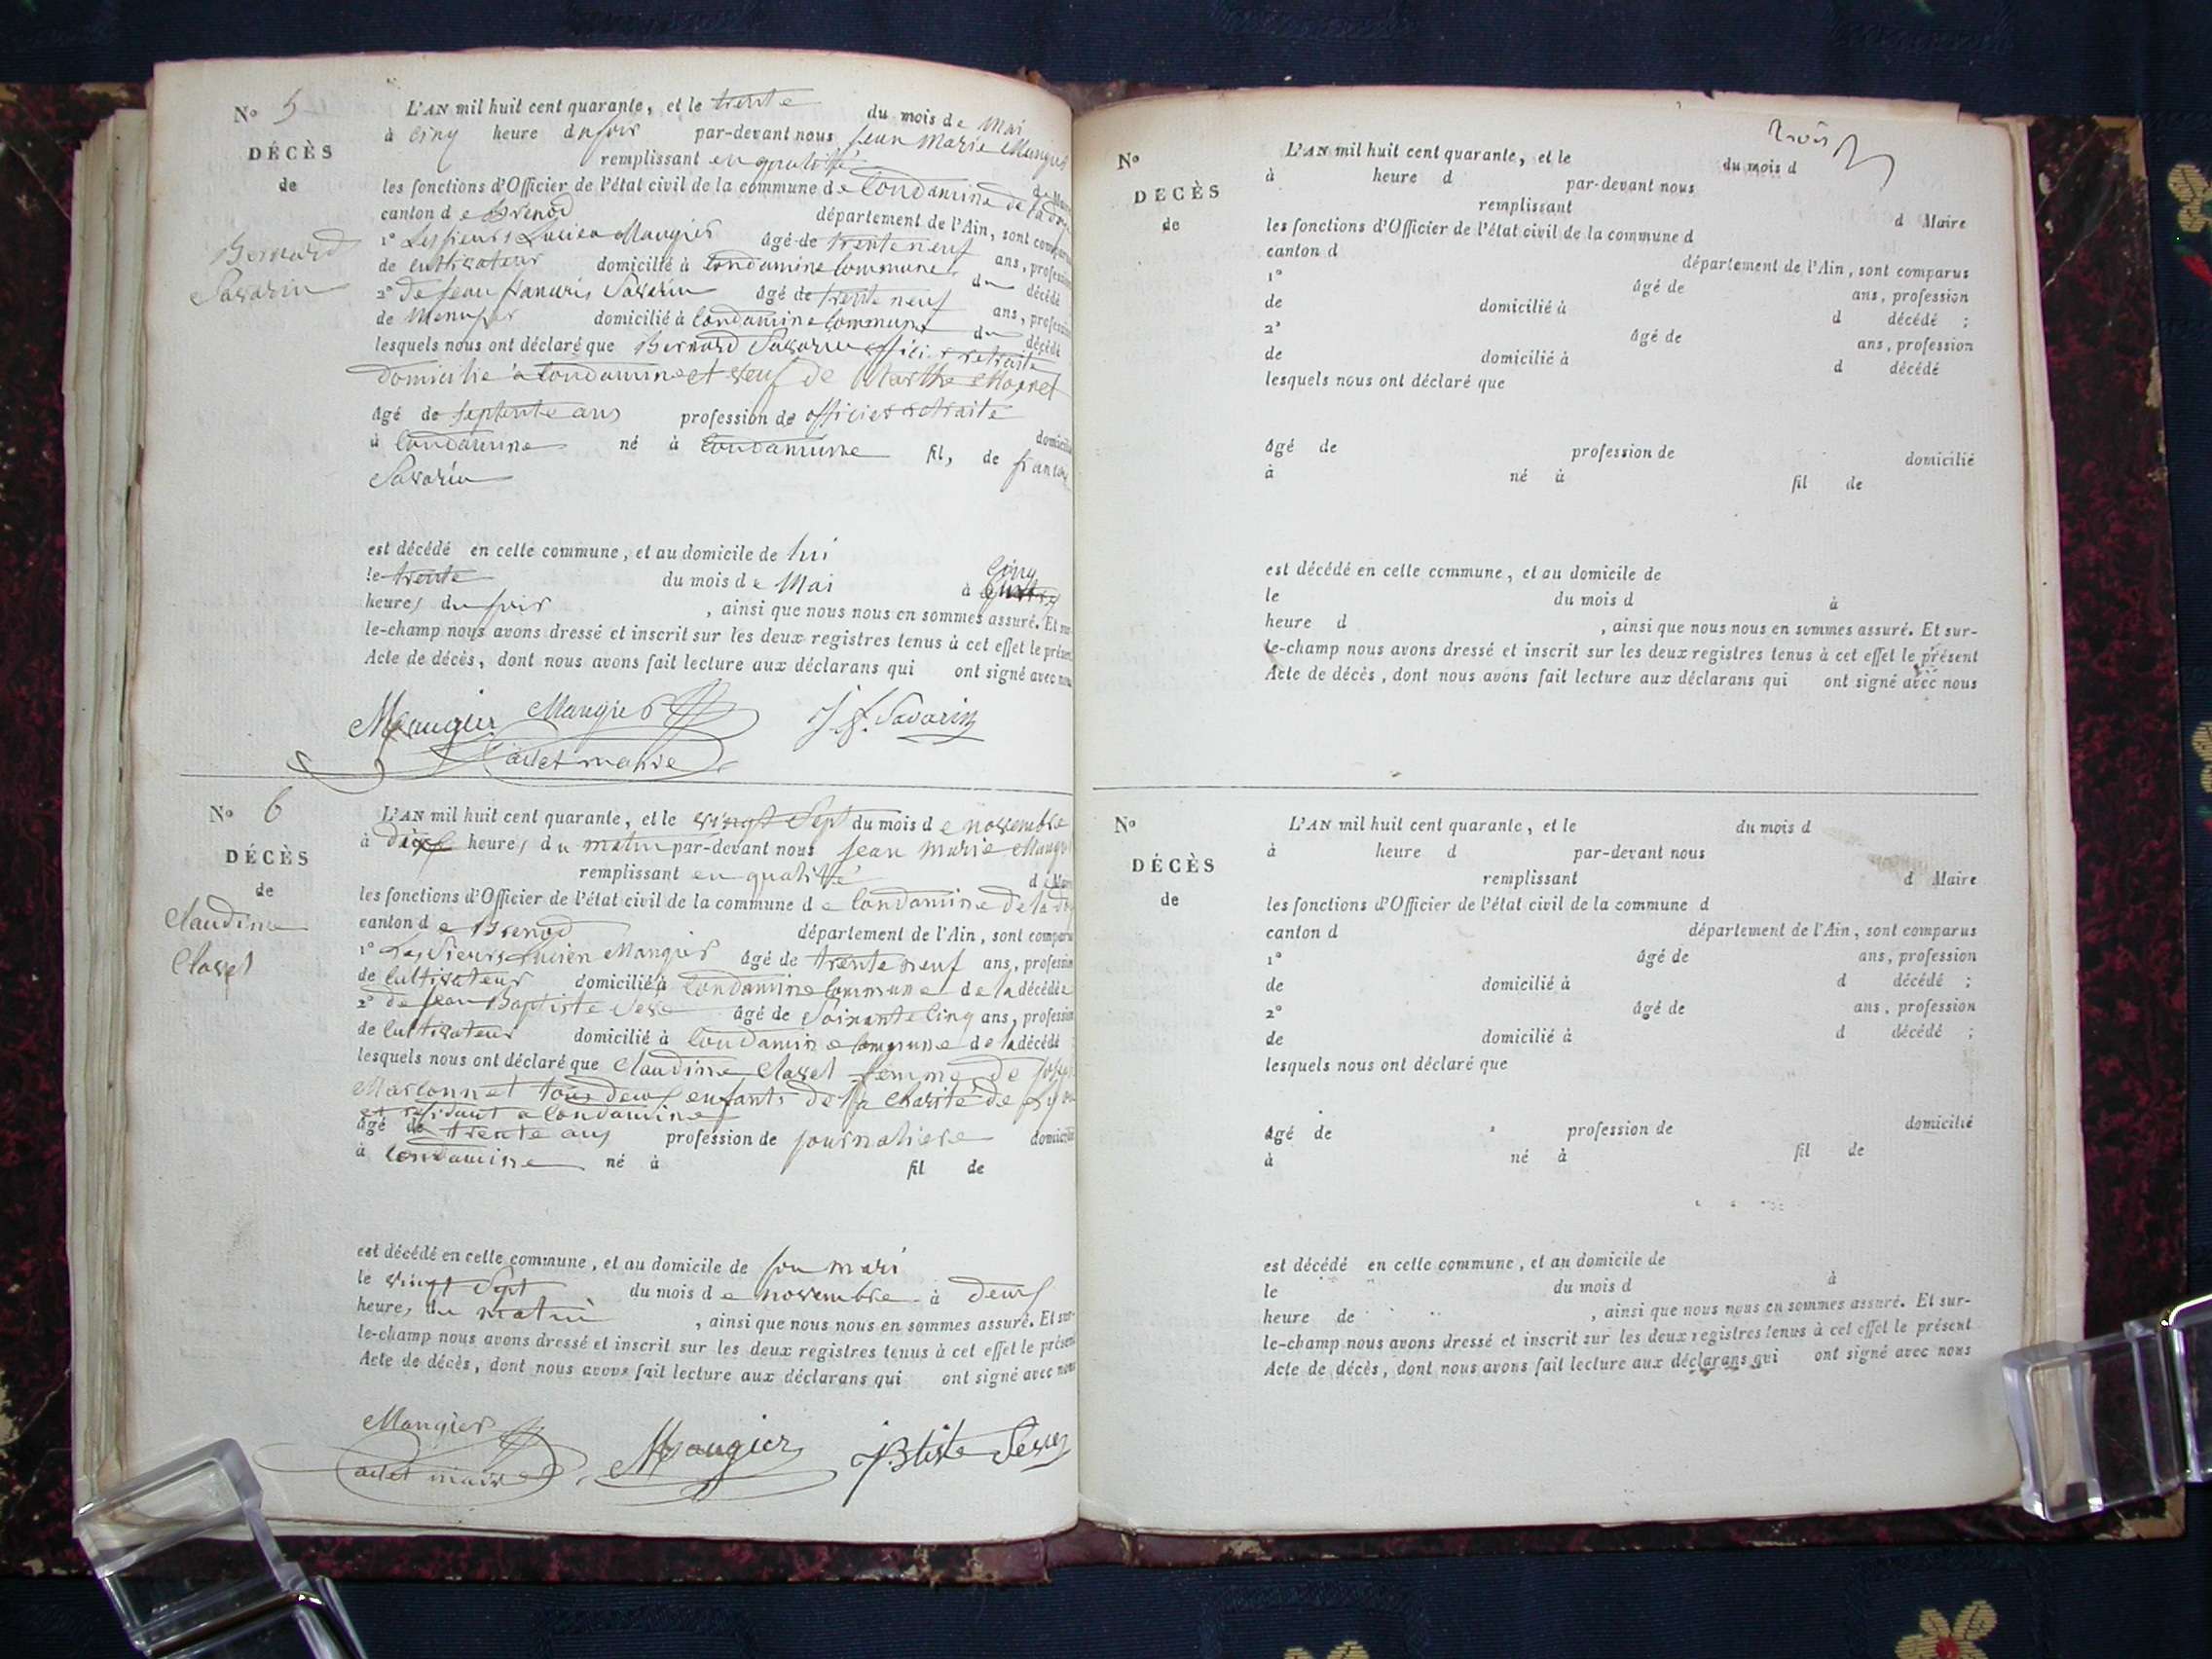 N° 5
DÉCÈS
de
Bernard
Savarin
L'AN mil huit cent quarante, et le trente du mois de Mai
à cinq heure du soir par-devant nous Jean Marie Maugier
remplissant en qualité de Maire
les fonctions d'Officier de l'état civil de la commune de Condamine de la
canton de Brenod département de l'Ain, sont comparus
1° Les sieurs Lucien Maugier âgé de trente neuf ans, profession
de cultivateur domicilié à Condamine Commune du décédé
2° de Jean francois Savarin âgé de trente neuf ans, profession
de domicilié à Condamine Commune du décédé
lesquels nous ont déclaré que Bernard Savarin officier retraité
domicilié à Condamine et veuf de Marthe
âgé de septente ans profession de officier retraité domicilié
à Condamine né à Condamine fil, de
Savarin
est décédé en cette commune, et au domicile de lui
le trente du mois de Mai à cinq
heures du soir, ainsi que nous nous en sommes assuré. Et sur-
le-champ nous avons dressé et inscrit sur les deux registres tenus à cet effet le présent
Acte de décès, dont nous avons fait lecture aux déclarans qui ont signé avec nous
Maugier Maugier J. f. Savarin
cadet maire
N° 6
DÉCÈS
de
Claudine
Clavel
L'AN mil huit cent quarante, et le vingt Sept du mois de novembre
à heures du matin par-devant nous Jean Marie Maugier
remplissant en qualité de Maire
les fonctions d'Officier de l'état civil de la commune de Condamine de la
canton de Brenod département de l'Ain, sont comparus
1° Les Sieurs Lucien Maugier âgé de trente neuf ans, profession
de Cultivateur domicilié à Condamine Commune de la décédée
2° de Jean Baptiste Seve âgé de Soixante Cinq ans, profession
de Cultivateur domicilié à Condamine Commune de la décédé
lesquels nous ont déclaré que Claudine Clavel femme de
Marconnet tous deux enfants de la Charité de Lyon
et residant a Condamine
âgé de trente ans profession de journaliere domicilié
à Condamine né à fil de
est décédé en cette commune, et au domicile de son mari
le vingt Sept du mois de novembre à deux
heures du matin, ainsi que nous nous en sommes assuré. Et sur-
le-champ nous avons dressé et inscrit sur les deux registres tenus à cet effet le présent
Acte de décès, dont nous avons fait lecture aux déclarans qui ont signé avec nous
Maugier Maugier JBtiste Seve
cadet maire
N°
DECÈS
de
L'AN mil huit cent quarante, et le du mois d
à heure d par-devant nous
remplissant d Maire
les fonctions d'Officier de l'état civil de la commune d
canton d département de l'Ain, sont comparus
1° âgé de ans, profession
de domicilié à d décédé ;
2° âgé de ans, profession
de domicilié à d décédé
lesquels nous ont déclaré que
âgé de profession de domicilié
à né à fil de
est décédé en cette commune, et au domicile de
le du mois d à
heure d , ainsi que nous nous en sommes assuré. Et sur-
le-champ nous avons dressé et inscrit sur les deux registres tenus à cet effet le présent
Acte de décès, dont nous avons fait lecture aux déclarans qui ont signé avec nous
N°
DÉCÈS
de
L'AN mil huit cent quarante, et le du mois d
à heure d par-devant nous
remplissant d Maire
les fonctions d'Officier de l'état civil de la commune d
canton d département de l'Ain, sont comparus
1° âgé de ans, profession
de domicilié à d décédé ;
2° âgé de ans, profession
de domicilié à d décédé ;
lesquels nous ont déclaré que
âgé de profession de domicilié
à né à fil de
est décédé en cette commune, et au domicile de
le du mois d à
heure de , ainsi que nous nous en sommes assuré. Et sur-
le-champ nous avons dressé et inscrit sur les deux registres tenus à cet effet le présent
Acte de décès, dont nous avons fait lecture aux déclarans qui ont signé avec nous